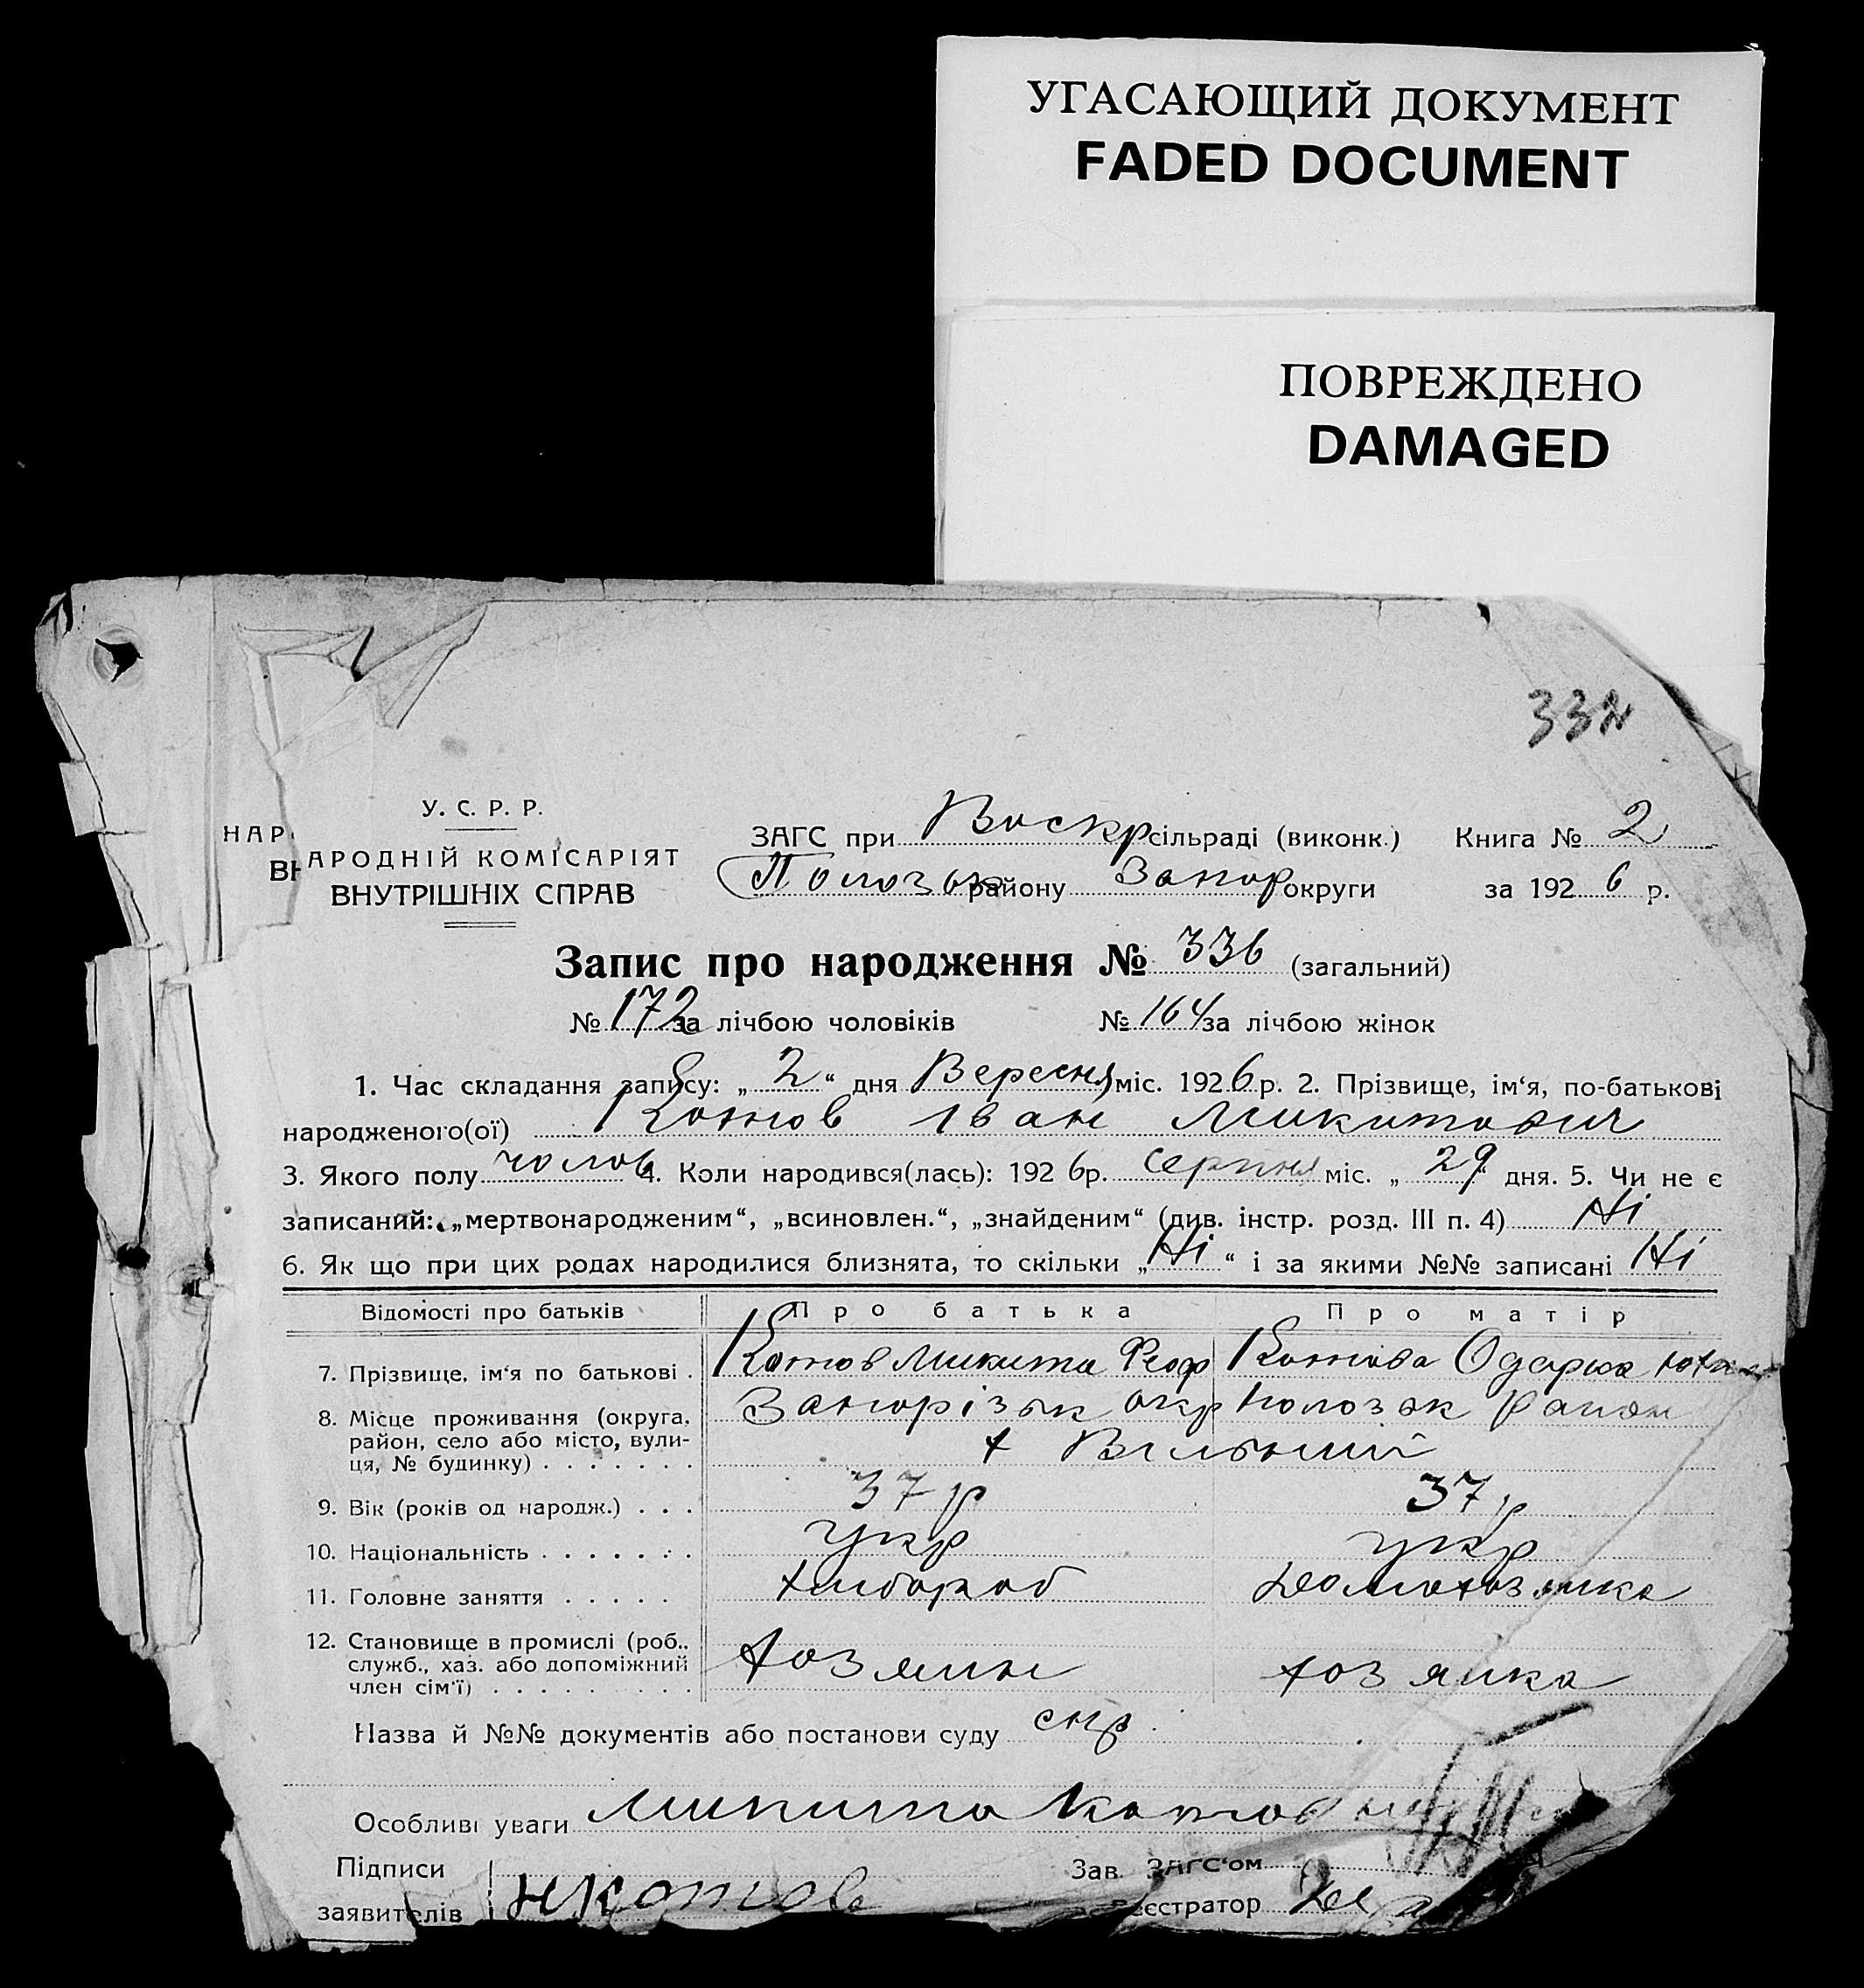 УГАСАЮЩИЙ ДОКУМЕНТ
FADED DOCUMENT
ПОВРЕЖДЕНО
DAMAGED
332
У. С. Р. Р.
НАР
АРОДНІЙ КОМІСАРІЯТ
ВН
ВНУТРІШНІХ СПРАВ
ЗАГС при Воскр сільраді (виконк.) Книга № 2
Полозьк району Запор округи за 1926 р.
Запис про народження № 336 (загальний)
№ 172 за лічбою чоловіків № 164 за лічбою жінок
1. Час складання запису: „2“ дня Вересня міс. 1926 р. 2. Прізвище, ім‘я, по-батькові
народженого(ої) Котов Іван Микитович
3. Якого полу чолов 4. Коли народився(лась): 1926 р. серпня міс. „29“ дня. 5. Чи не є
записаний: „мертвонародженим“, „всиновлен.“, „знайденим“ (див. інстр. розд. III п. 4) Ні
6. Як що при цих родах народилися близнята, то скільки „Ні“ і за якими №№ записані Ні
Відомості про батьків Про батька Про матір
7. Прізвище, ім‘я по батькові . Котов Микита Феоф Котова Одарка
8. Місце проживання (округа, Запорізьк окр Полозьк Район
район, село або місто, вули- х Вільний
ця, № будинку) . . . . . . .
9. Вік (років од народж.) . . . 37 р 37 р
10. Національність . . . . . . . укр укр
11. Головне заняття . . . . . хлібороб домохозяйка
12. Становище в промислі (роб.,
служб., хаз. або допоміжний хозяин хозяйка
член сім‘ї) . . . . . . . . .
Назва й №№ документів або постанови суду спр.
Особливі уваги Микита Котов
Підписи Зав. ЗАГС‘ом
заявителів НКотов еєстратор